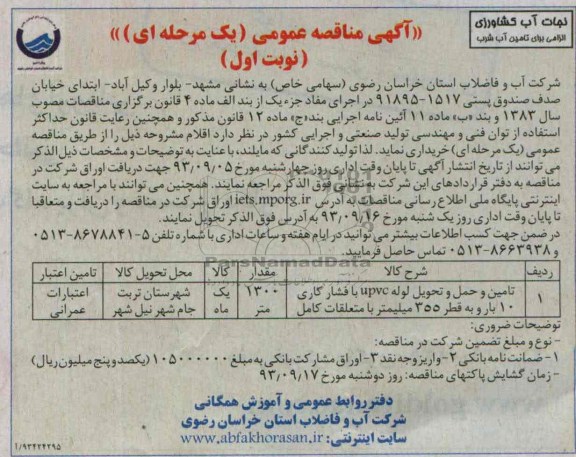 نجات آب کشاورزی
الزامی برای تامین آب شرب
«آگهی مناقصه عمومی (یک مرحله ای)»
(نوبت اول)
شرکت آب و فاضلاب استان خراسان رضوی (سهامی خاص) به نشانی مشهد- بلوار وکیل آباد- ابتدای خیابان
صدف صندوق پستی ۱۵۱۷-۹۱۸۹۵ در اجرای مفاد جزء یک از بند الف ماده ۴ قانون برگزاری مناقصات مصوب
سال ۱۳۸۳ و بند «ب» ماده ۱۱ آئین نامه اجرایی بند «ج» ماده ۱۲ قانون مذکور و همچنین رعایت قانون حداکثر
استفاده از توان فنی و مهندسی تولید صنعتی و اجرایی کشور در نظر دارد اقلام مشروحه ذیل را از طریق مناقصه
عمومی (یک مرحله ای) خریداری نماید. لذا تولید کنندگانی که مایلند، با عنایت به توضیحات و مشخصات ذیل الذکر
می توانند از تاریخ انتشار آگهی تا پایان وقت اداری روز چهارشنبه مورخ ۹۳/۰۹/۰۵ جهت دریافت اوراق شرکت در
مناقصه به دفتر قراردادهای این شرکت به نشانی فوق الذکر مراجعه نمایند. همچنین می توانند با مراجعه به سایت
اینترنتی پایگاه ملی اطلاع رسانی مناقصات به آدرس iets.mporg.ir اوراق شرکت در مناقصه را دریافت و متعاقبا
تا پایان وقت اداری روز یک شنبه مورخ ۹۳/۰۹/۱۶ به آدرس فوق الذکر تحویل نمایند.
در ضمن جهت کسب اطلاعات بیشتر می توانید در ایام هفته و ساعات اداری با شماره تلفن ۵-۸۶۷۸۸۴۱-۰۵۱۳
و ۸۶۶۳۹۳۸-۰۵۱۳ تماس حاصل فرمایید.
ردیف شرح کالا مقدار کالا محل تحویل کالا تامین اعتبار
۱ تامین و حمل و تحویل لوله upvc با فشار کاری ۱۳۰۰ یک شهرستان تربت اعتبارات
۱۰ بار و به قطر ۳۵۵ میلیمتر با متعلقات کامل متر ماه جام شهر نیل شهر عمرانی
توضیحات ضروری:
- نوع و مبلغ تضمین شرکت در مناقصه:
۱- ضمانت نامه بانکی ۲- واریز وجه نقد ۳- اوراق مشارکت بانکی به مبلغ ۱۰۵۰۰۰۰۰۰ (یکصد و پنج میلیون ریال)
- زمان گشایش پاکتهای مناقصه: روز دوشنبه مورخ ۹۳/۰۹/۱۷
دفتر روابط عمومی و آموزش همگانی
شرکت آب و فاضلاب استان خراسان رضوی
سایت اینترنتی: www.abfakhorasan.ir
۱/۹۳۴۲۴۲۹۵
ParsNamadData